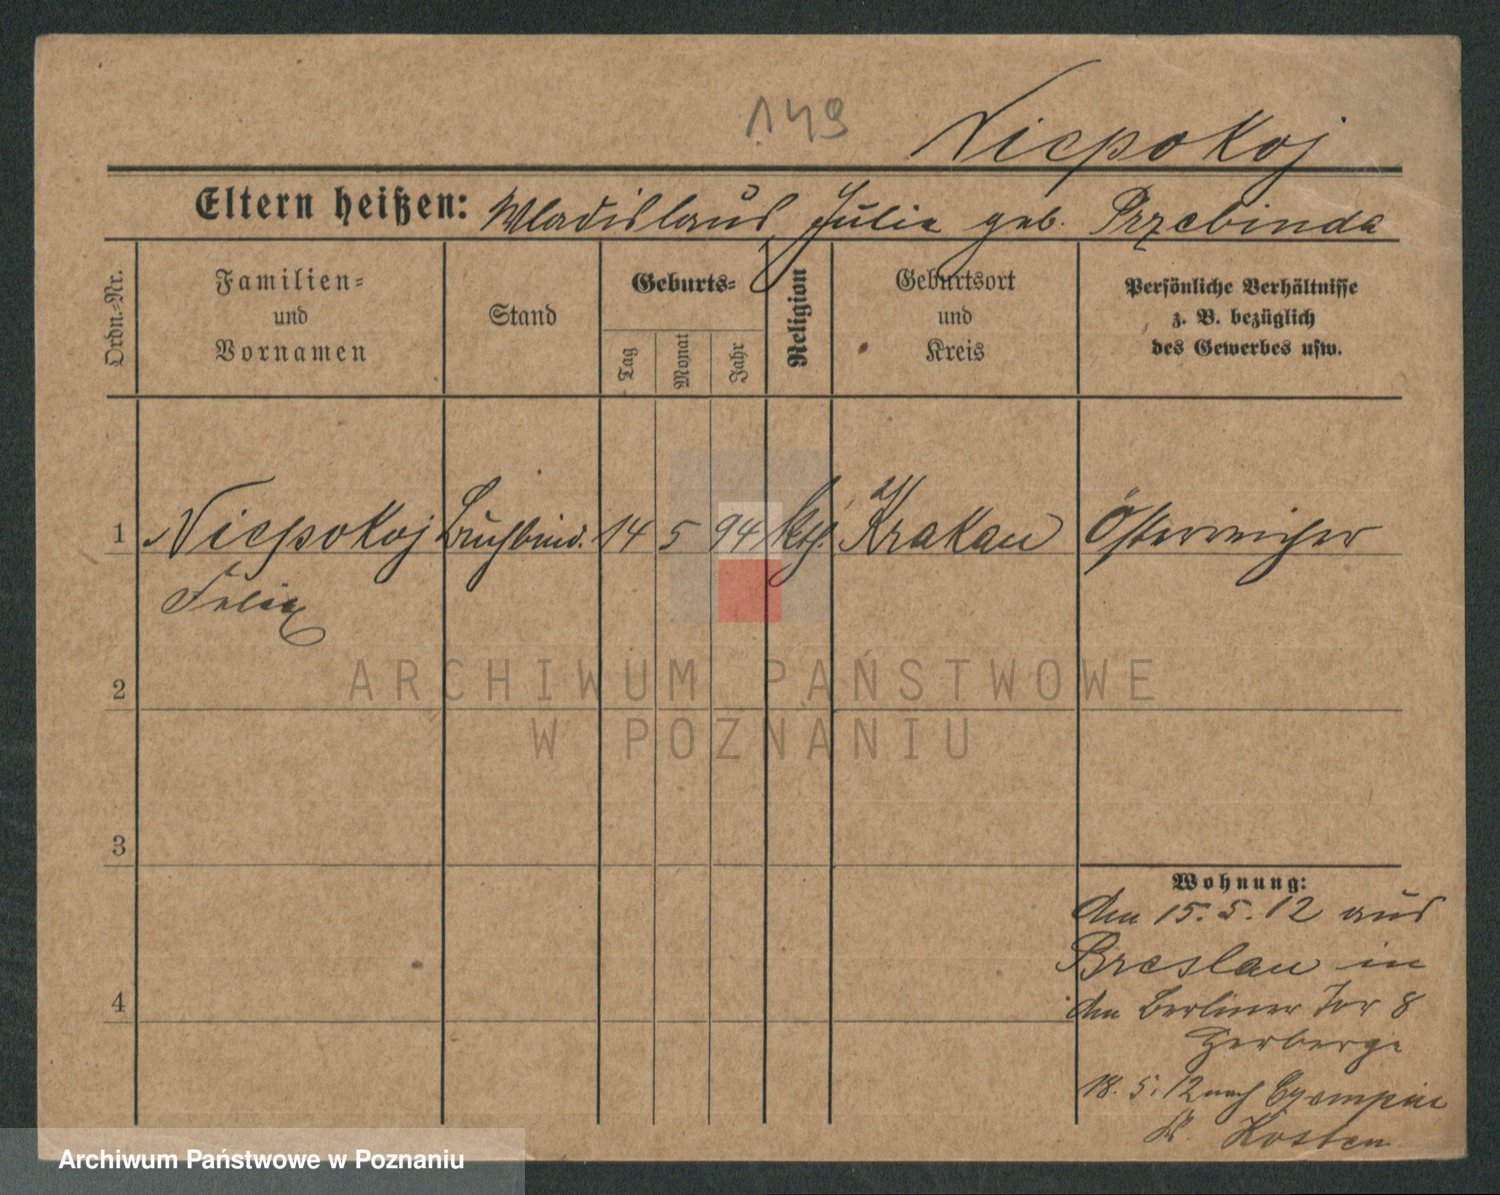 149
Niepokoj
Eltern heißen: Wladislaus, Julie geb. Przebinda
Ordn.-Nr.
Familien-
und
Vornamen
Stand
Geburts-
Tag
Monat
Jahr
Religion
Geburtsort
und
Kreis
Persönliche Verhältnisse
z. B. bezüglich
des Gewerbes usw.
1 Niepokoj Buchbind. 14 5 94 kth. Krakau Österreicher
Felix
2
3
4
Wohnung:
den 15.5.12 aus
Breslau in
Am Berliner Tor 8
Herberge
18.5.12 nach
Kr. Kosten
ARCHIWUM PAŃSTWOWE
W POZNANIU
Archiwum Państwowe w Poznaniu